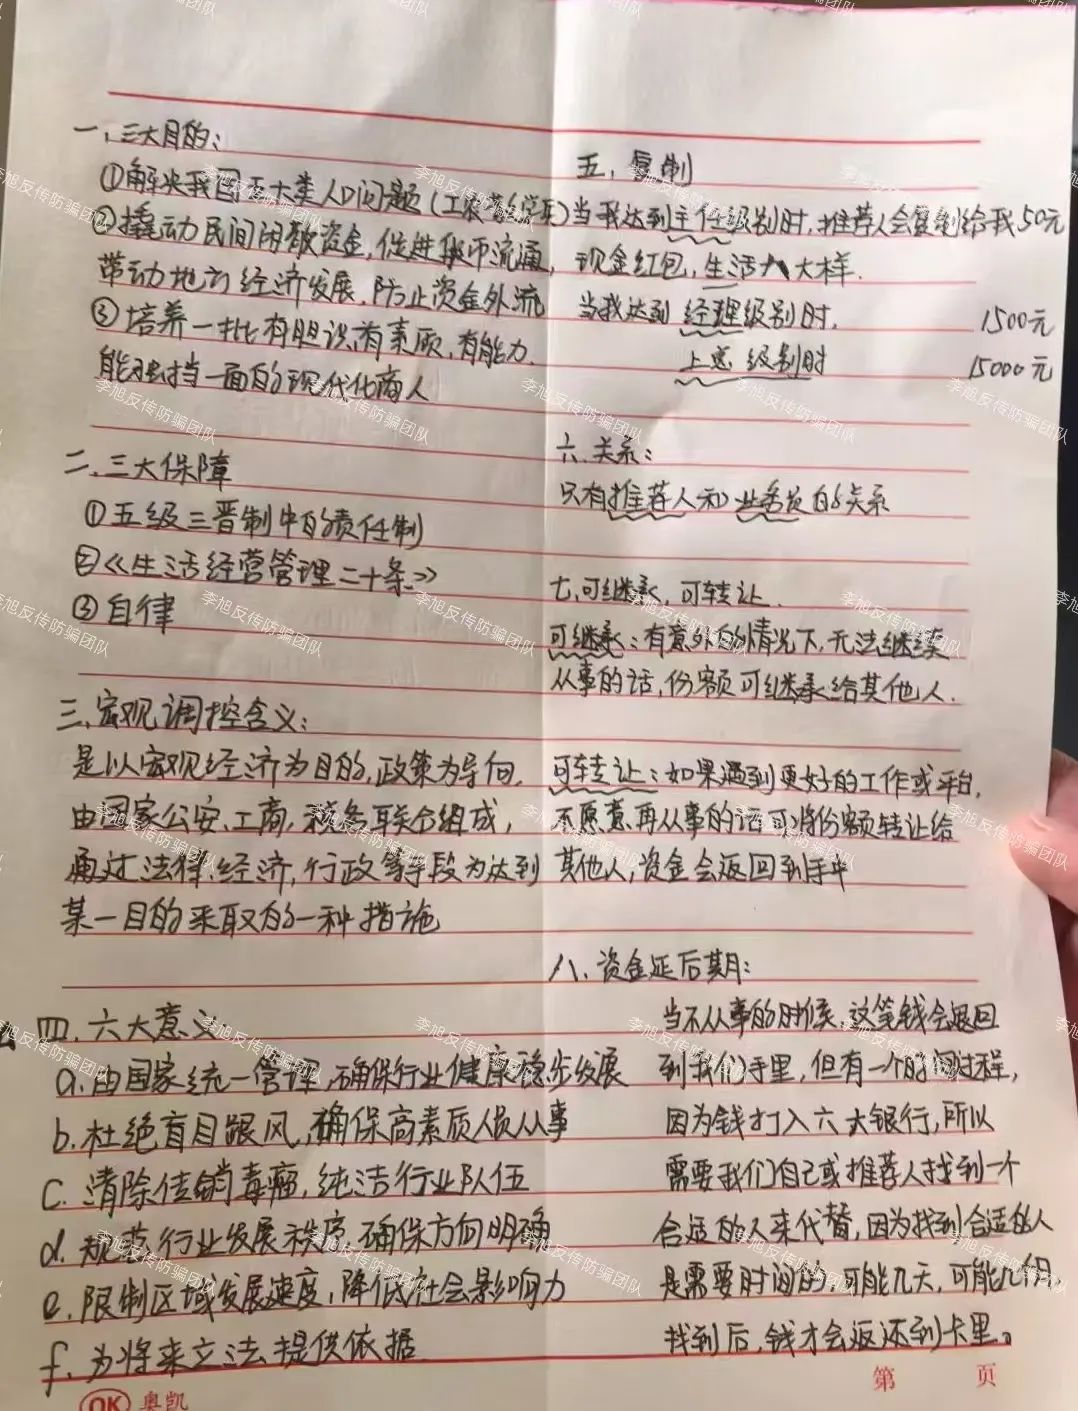 一、三大目的：
①解决我国五大类人口问题（工农
②撬动民间闲散资金,促进货币流通,
带动地方经济发展.防止资金外流
③培养一批有胆识,有素质,有能力.
能独挡一面的现代化商人
二.三大保障
①五级三晋制中的责任制
②《生活经营管理二十条》
③自律
三.宏观调控含义：
是以宏观经济为目的,政策为导向,
由国家公安、工商,税务联合组成,
通过法律,经济,行政等手段为达到
某一目的采取的一种措施
四.六大意义
a.由国家统一管理,确保行业健康稳步发展
b.杜绝盲目跟风,确保高素质人员从事
C.清除传销毒瘤,纯洁行业队伍
d.规范行业发展秩序,确保方向明确
e.限制区域发展速度,降低社会影响力
f.为将来立法提供依据
五,复制
当我达到主任级别时,推荐人会复制给我50元
现金红包,生活大样.
当我达到经理级别时, 1500元
上总级别时 15000元
六.关系：
只有推荐人和业务员的关系
七.可继承,可转让.
可继承：有意外的情况下,无法继续
从事的话,份额可继承给其他人.
可转让：如果遇到更好的工作或平台,
不愿意再从事的话可将份额转让给
其他人,资金会返回到手中
八、资金延后期：
当不从事的时候,这笔钱会退回
到我们手里,但有一个时间过程,
因为钱打入六大银行,所以
需要我们自己或推荐人找到一个
合适的人来代替,因为找到合适的人
是需要时间的,可能几天,可能几个月,
找到后,钱才会返还到卡里。
第 页
OK 奥凯
李旭反传防骗团队